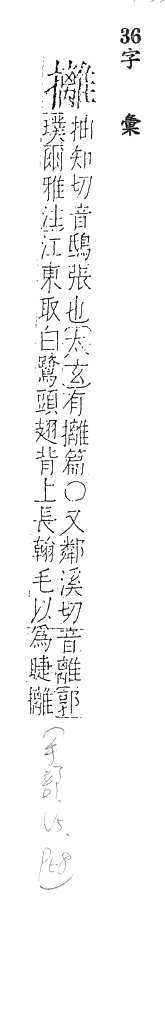 36字彙
攡
抽知切音鴟張也太玄有攡篇〇又鄰溪切音離郭
璞爾雅註江東取白鷺頭翅背上長翰毛以為睫攡
(手部.